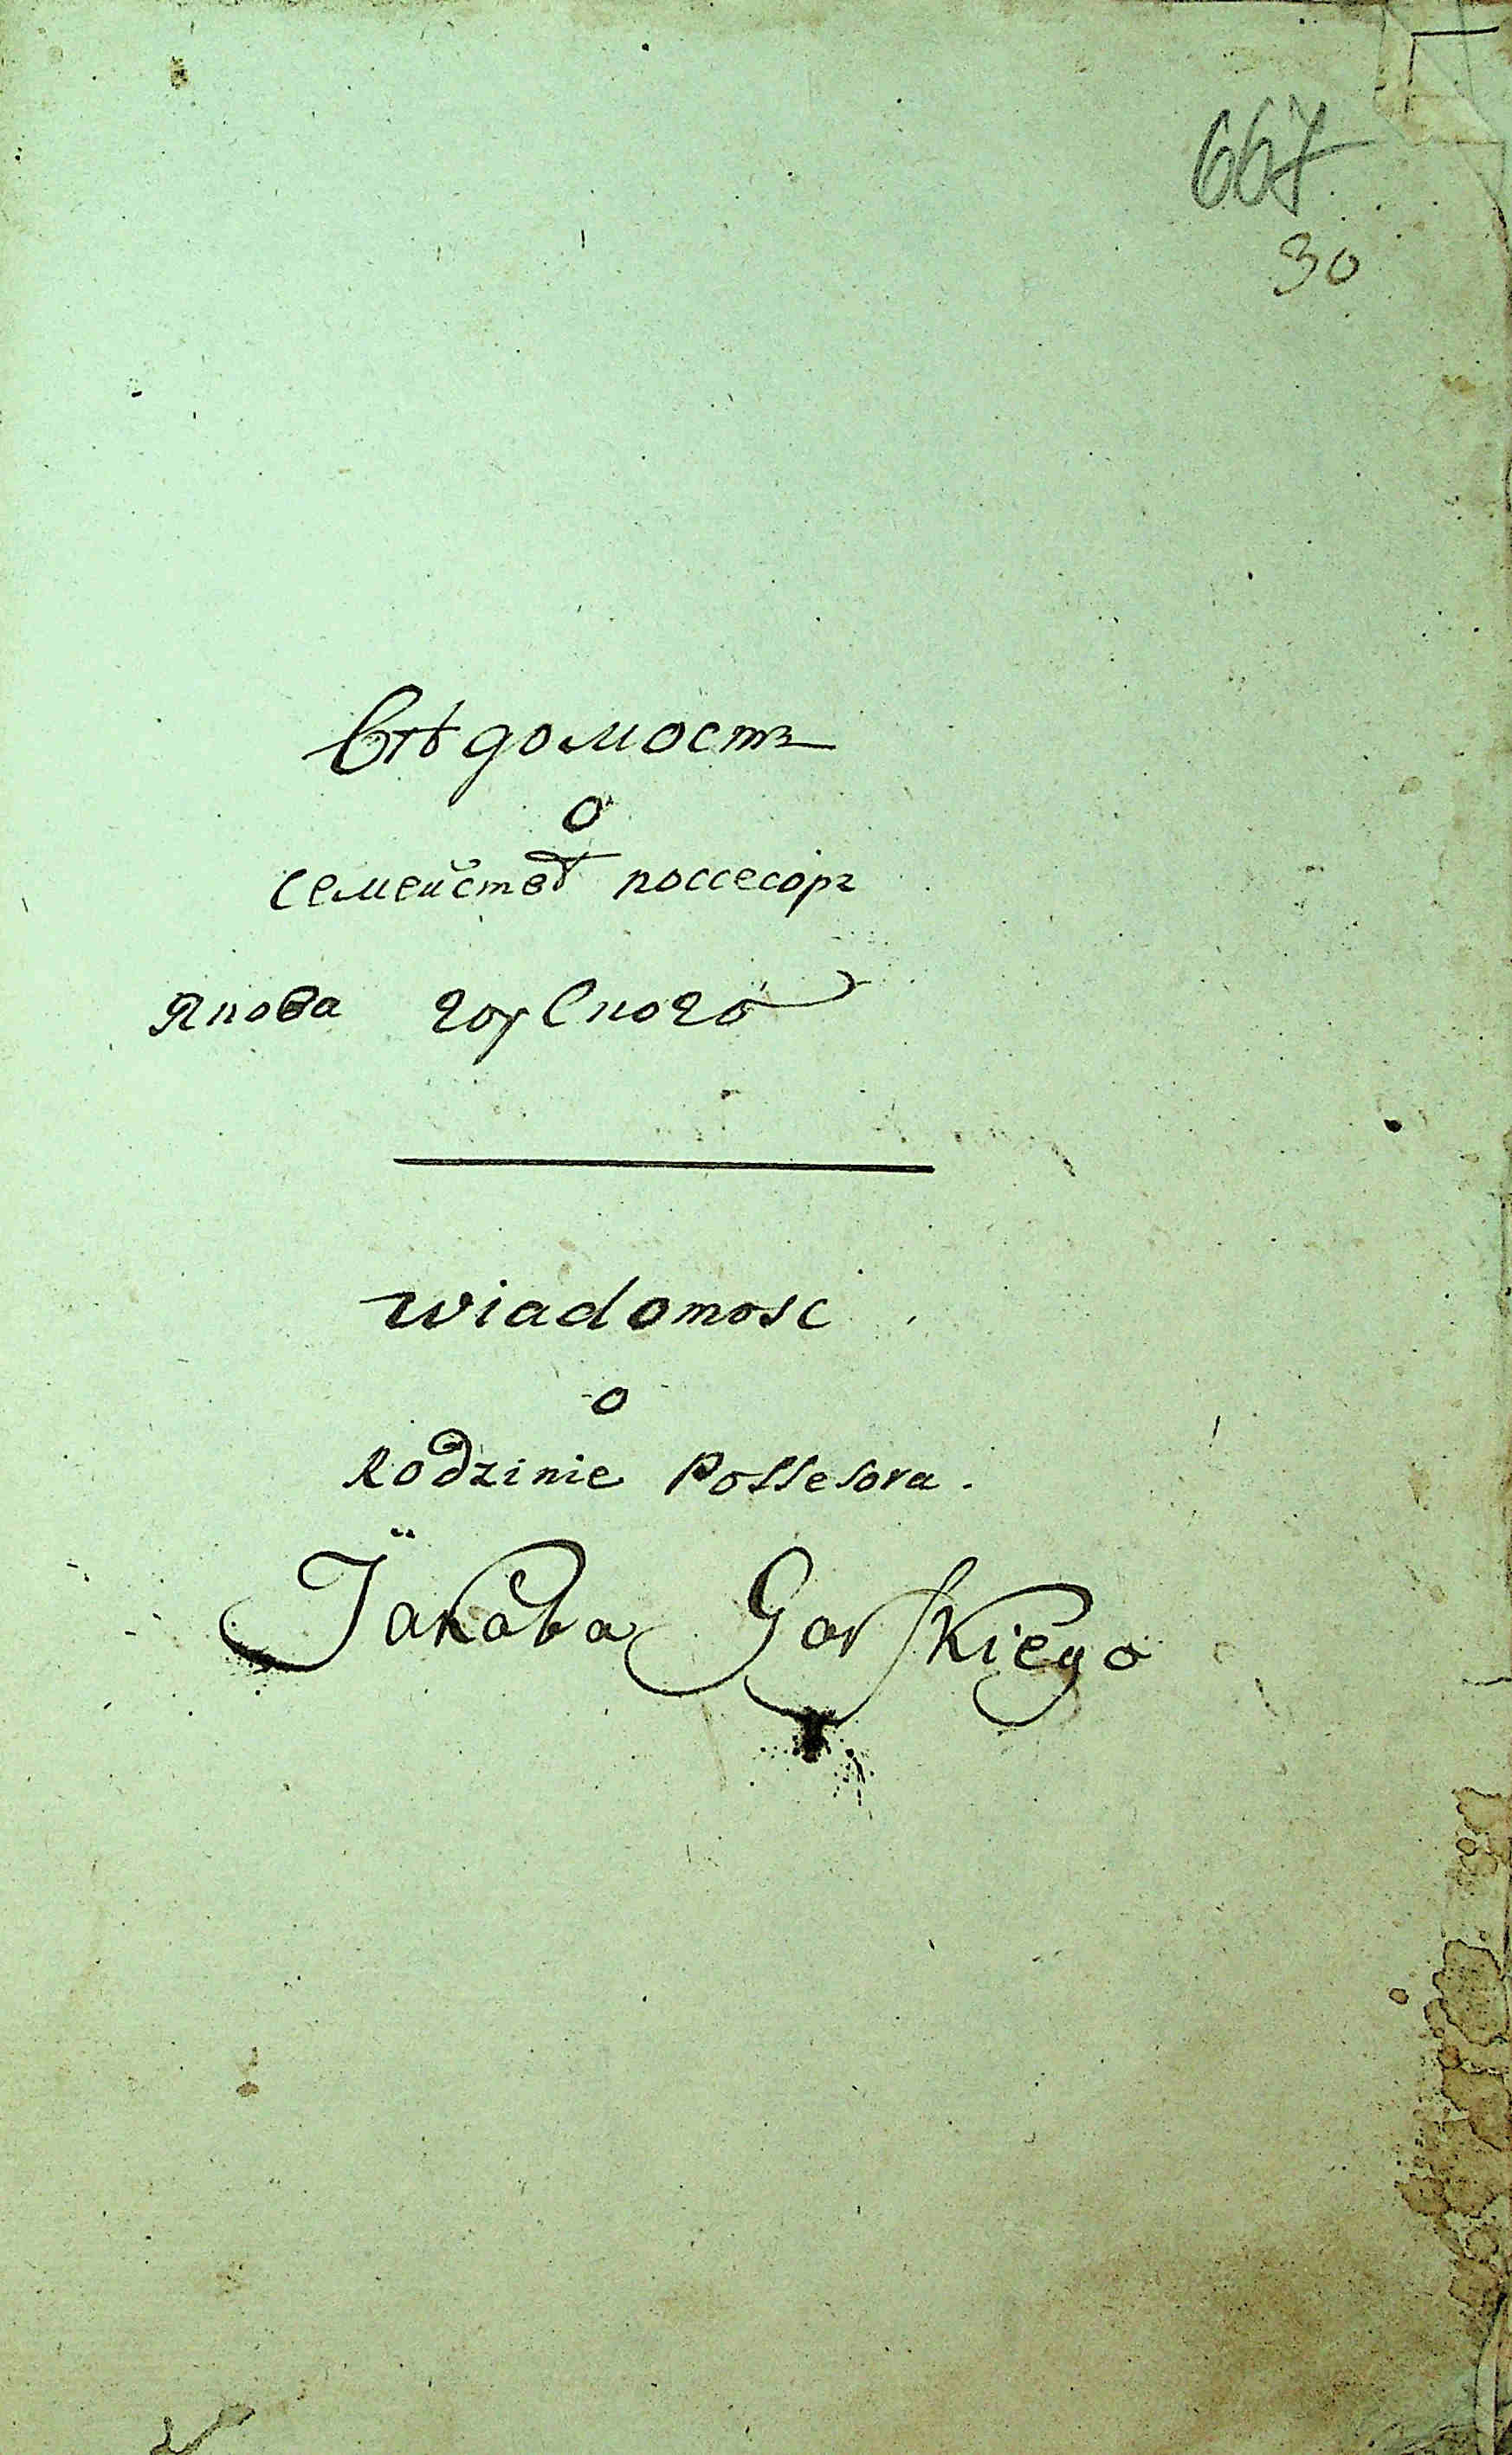 667
30
Вѣдомость
о
Семействѣ поссесора
Якова горСкого
wiadomosc
o
Rodzinie Possesora.
Jakóba Gorskiego